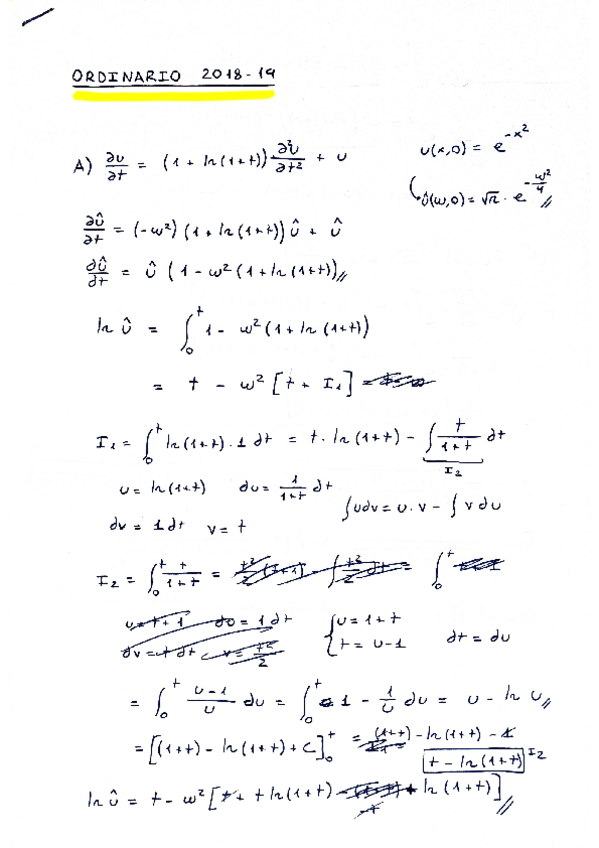 ORDINARIO 2018-19
A) ∂u/∂t = (1 + ln(1+t)) ∂²u/∂t² + u u(x,0) = e^(-x²)
û(ω,0) = √π · e^(-ω²/4) //
∂û/∂t = (-ω²) (1 + ln(1+t)) û + û
dû/dt = û (1 - ω²(1 + ln(1+t)) //
ln û = ∫₀ᵗ 1 - ω²(1 + ln(1+t))
= t - ω² [t + I₁]
I₁ = ∫₀ᵗ ln(1+t) · 1 dt = t · ln(1+t) - ∫ t/(1+t) dt
I₂
u = ln(1+t) du = 1/(1+t) dt
∫udv = u · v - ∫ v du
dv = 1dt v = t
I₂ = ∫₀ᵗ t/(1+t) = = ∫₀ᵗ
u = t+1 du = 1 dt { u = 1+t
dv = t dt v = t²/2 t = u-1 dt = du
= ∫₀ᵗ (u-1)/u du = ∫₀ᵗ 1 - 1/u du = u - ln u //
= [(1+t) - ln(1+t) + C]₀ᵗ = (1+t) - ln(1+t) - 1
t - ln(1+t) I₂
ln û = t - ω² [t + t ln(1+t) - t + ln(1+t)] //